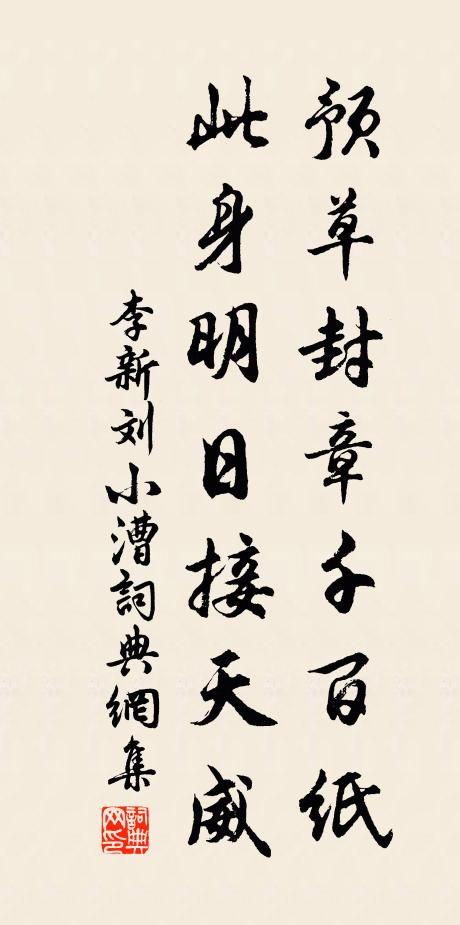 預草封章千百紙
此身明日接天威
李新刘小漕詞典網集
詞典网印